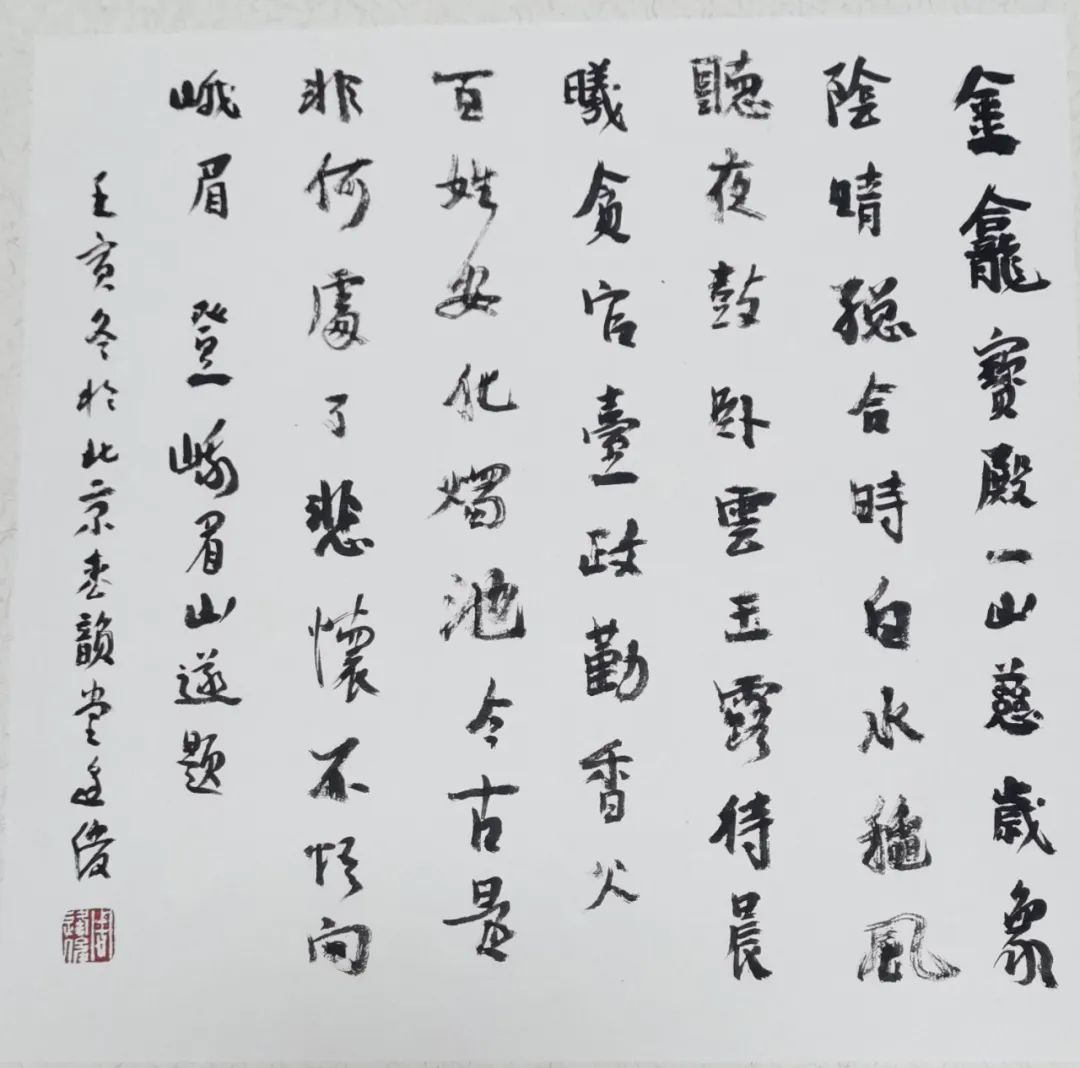 金龕寶殿一山慈歲象
陰晴緫合時白水穐風
聽夜鼓卧雲玉露待晨
曦貪官政勤香火
百姓安化燭池今古是
非何處了悲懷不向
峨眉 登峨眉山遂题
壬寅冬於北京枩韻堂逢俊
周逢俊